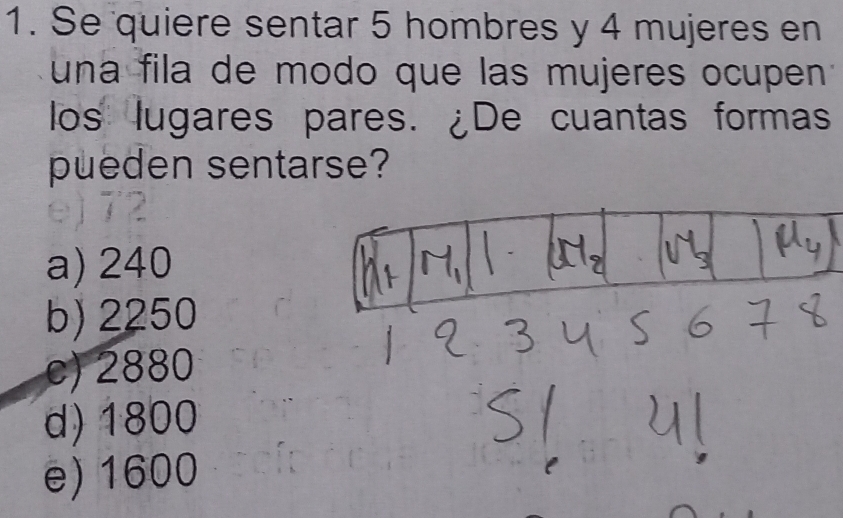 1. Se quiere sentar 5 hombres y 4 mujeres en
una fila de modo que las mujeres ocupen
los lugares pares. ¿De cuantas formas
pueden sentarse?
e) 72
a) 240
b) 2250
c) 2880
d) 1800
e) 1600
H1 M1 M2 M3 M4
1 2 3 4 5 6 7 8
5! 4!